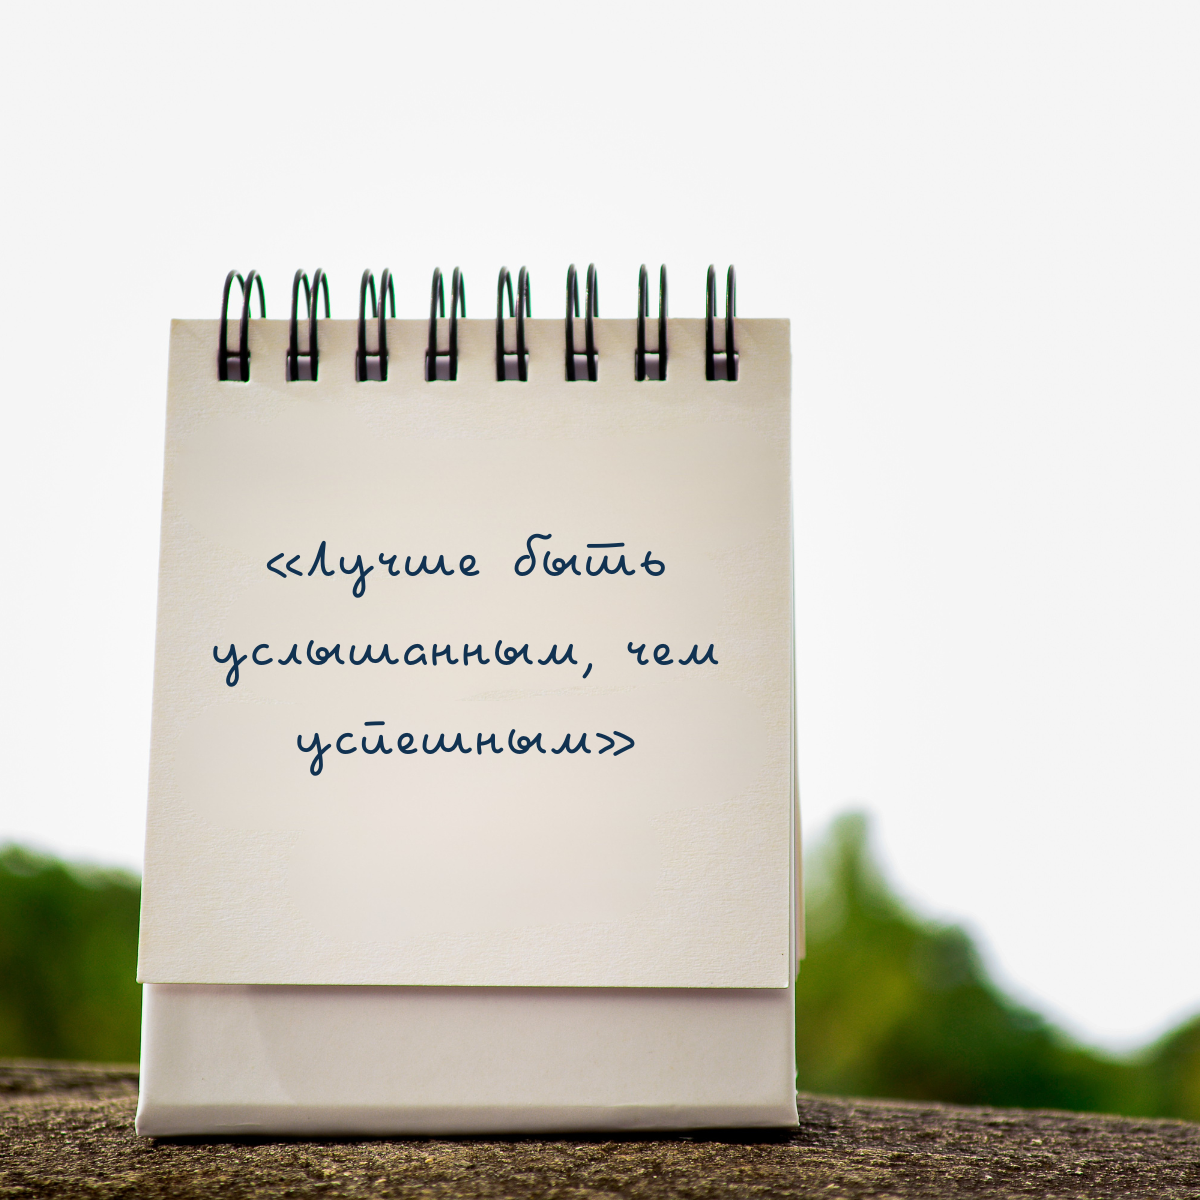 «Лучше быть
услышанным, чем
успешным»